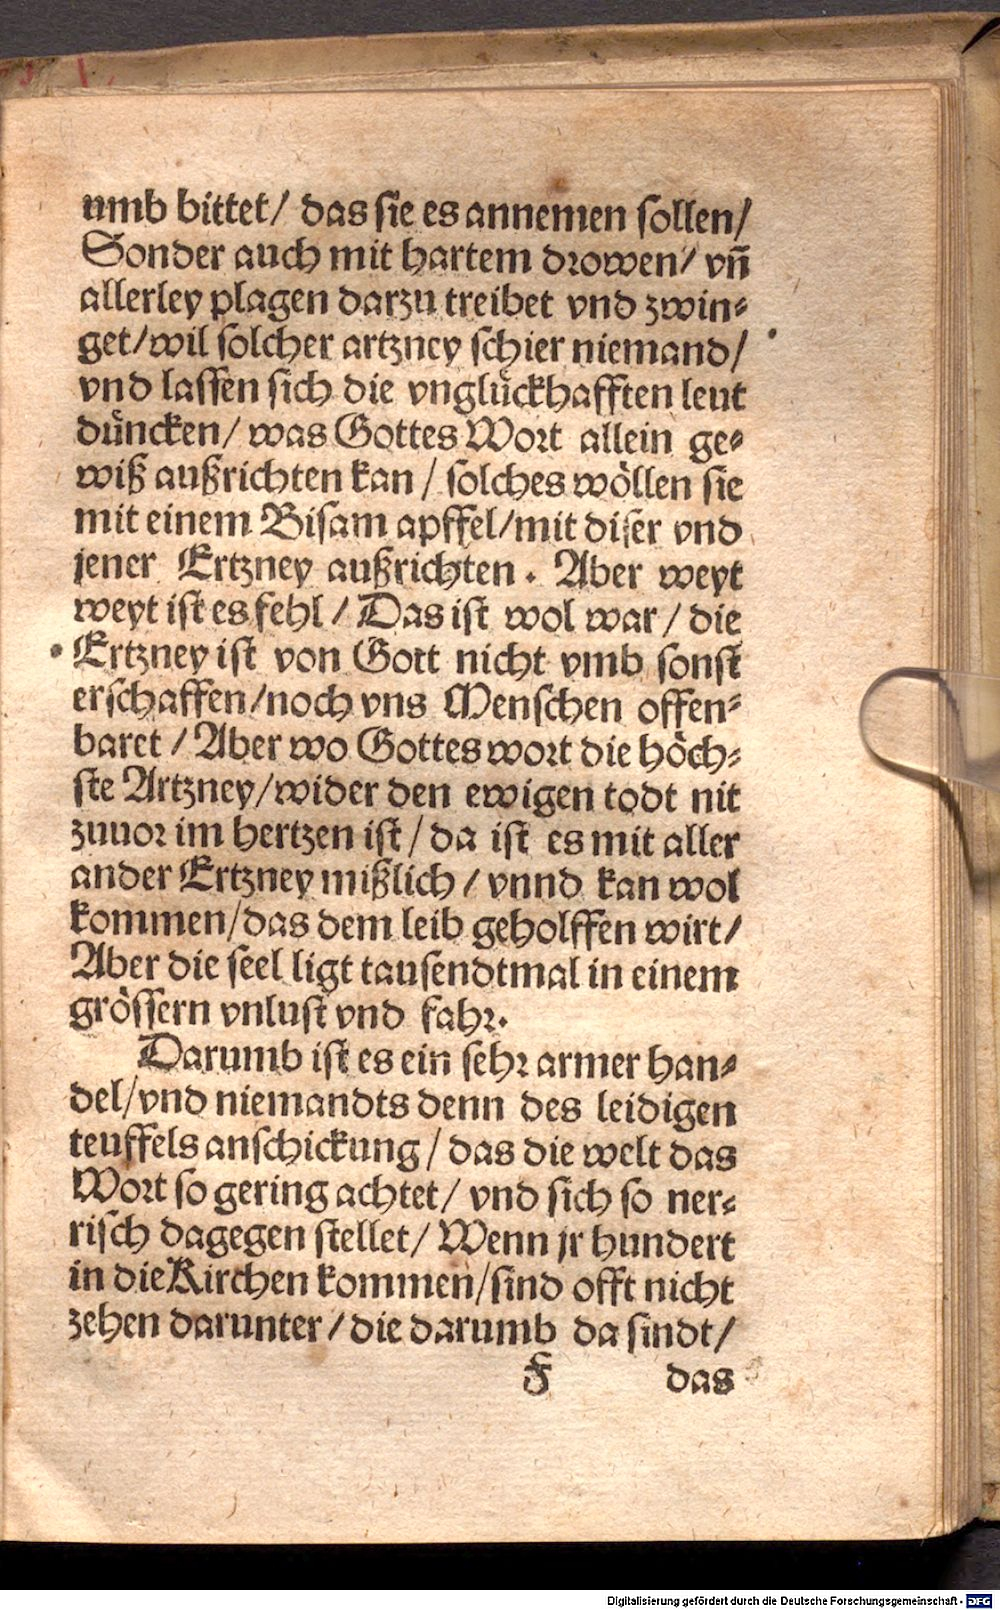 umb bittet/ das sie es annemen sollen/
Sonder auch mit hartem drowen/ vñ
allerley plagen darzu treibet vnd zwin⸗
get/wil solcher artzney schier niemand/
vnd lassen sich die vnglückhafften leut
düncken/ was Gottes Wort allein ge⸗
wiß außrichten kan / solches wöllen sie
mit einem Bisam apffel/mit diser vnd
jener Ertzney außrichten. Aber weyt
weyt ist es fehl / Das ist wol war / die
Ertzney ist von Gott nicht vmb sonst
erschaffen/noch vns Menschen offen⸗
baret / Aber wo Gottes wort die höch⸗
ste Artzney/wider den ewigen todt nit
zuuor im hertzen ist / da ist es mit aller
ander Ertzney mißlich / vnnd kan wol
kommen/das dem leib geholffen wirt/
Aber die seel ligt tausendtmal in einem
grössern vnlust vnd fahr.
Darumb ist es ein sehr armer han⸗
del/vnd niemandts denn des leidigen
teuffels anschickung / das die welt das
Wort so gering achtet/ vnd sich so ner⸗
risch dagegen stellet/ Wenn jr hundert
in die Kirchen kommen/sind offt nicht
zehen darunter / die darumb da sindt/
F das
Digitalisierung gefördert durch die Deutsche Forschungsgemeinschaft - DFG